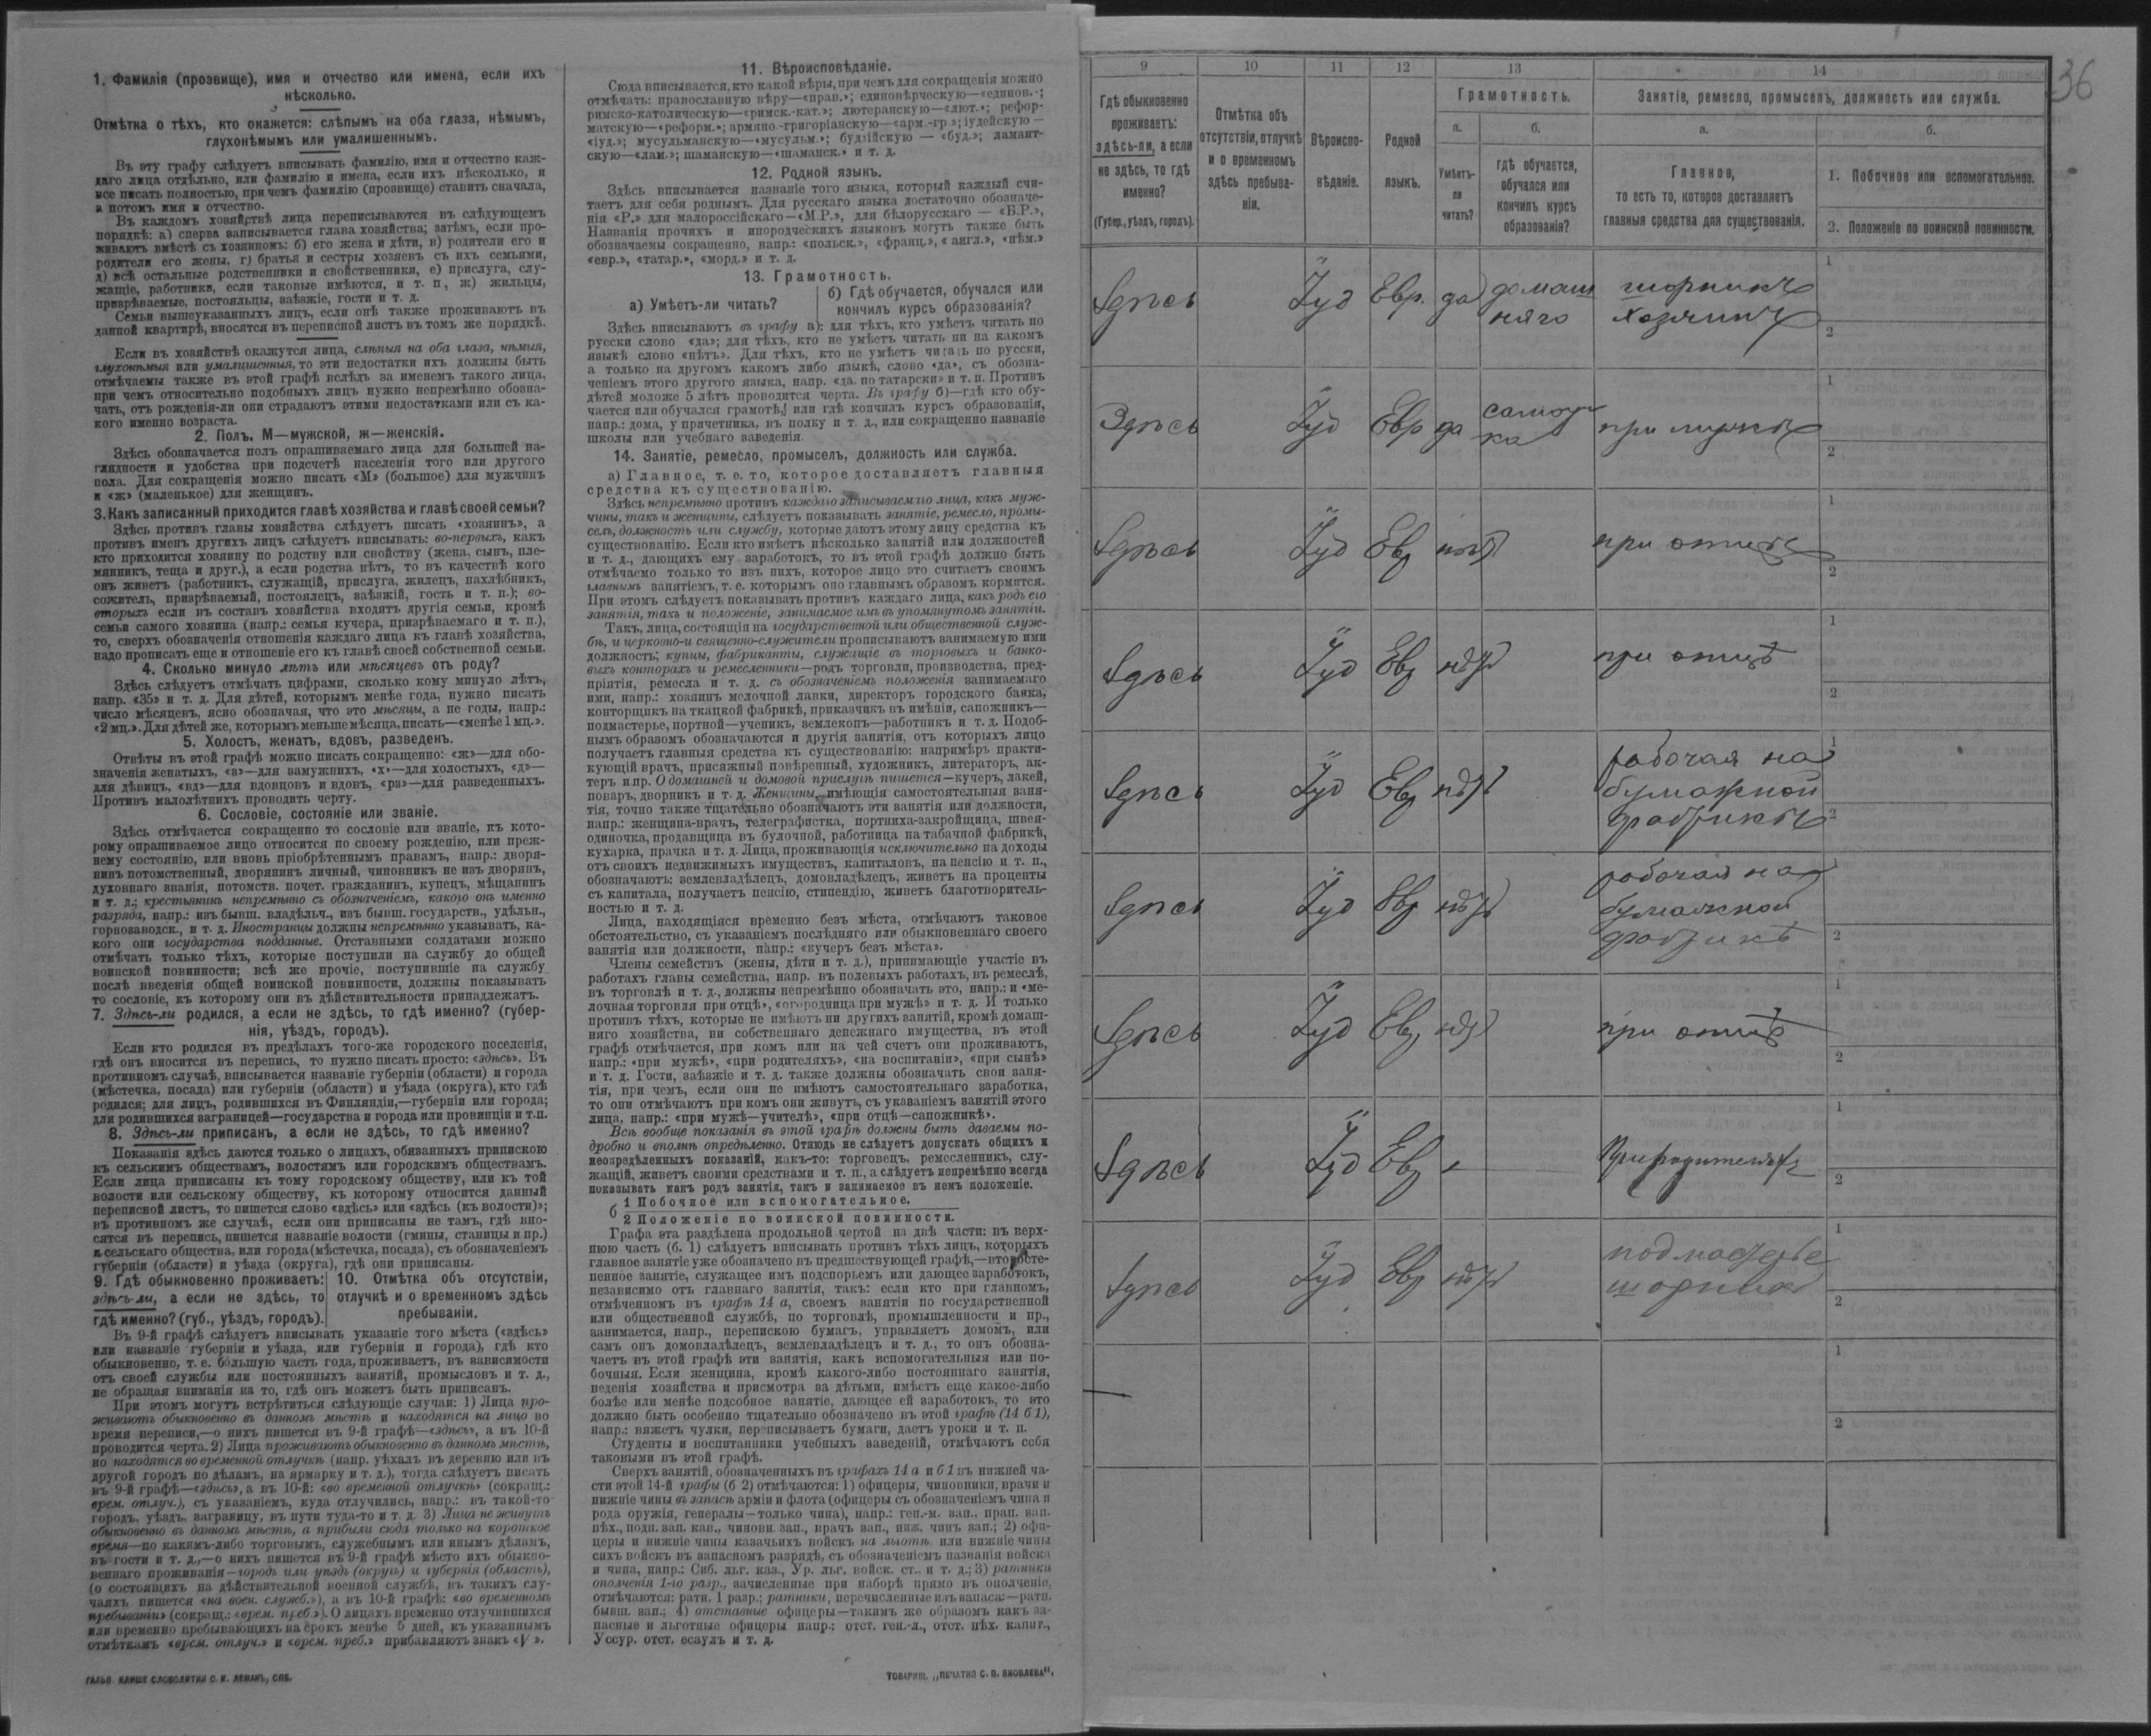 1. Фамилія (прозвище), имя и отчество или имена, если ихъ
нѣсколько.
Отмѣтка о тѣхъ, кто окажется: слѣпымъ на оба глаза, нѣмымъ,
глухонѣмымъ или умалишеннымъ.
Въ эту графу слѣдуетъ вписывать фамилію, имя и отчество каж-
даго лица отдѣльно, или фамилію и имена, если ихъ нѣсколько, и
все писать полностью, при чемъ фамилію (прозвище) ставить сначала,
а потомъ имя и отчество.
Въ каждомъ хозяйствѣ лица переписываются въ слѣдующемъ
порядкѣ: а) сперва записывается глава хозяйства; затѣмъ, если про-
живаютъ вмѣстѣ съ хозяиномъ: б) его жена и дѣти, в) родители его и
родители его жены, г) братья и сестры хозяевъ съ ихъ семьями,
д) всѣ остальные родственники и свойственники, е) прислуга, слу-
жащіе, работники, если таковые имѣются, и т. п, ж) жильцы,
призрѣваемые, постояльцы, заѣзжіе, гости и т. д.
Семьи вышеуказанныхъ лицъ, если онѣ также проживаютъ въ
данной квартирѣ, вносятся въ переписной листъ въ томъ же порядкѣ.
Если въ хозяйствѣ окажутся лица, слѣпыя на оба глаза, нѣмыя,
глухонѣмыя или умалишенныя, то эти недостатки ихъ должны быть
отмѣчаемы также въ этой графѣ вслѣдъ за именемъ такого лица,
при чемъ относительно подобныхъ лицъ нужно непремѣнно обозна-
чать, отъ рожденія-ли они страдаютъ этими недостатками или съ ка-
кого именно возраста.
2. Полъ, М—мужской, ж—женскій.
Здѣсь обозначается полъ опрашиваемаго лица для большей на-
глядности и удобства при подсчетѣ населенія того или другого
пола. Для сокращенія можно писать «М» (большое) для мужчинъ
и «ж» (маленькое) для женщинъ.
3. Какъ записанный приходится главѣ хозяйства и главѣ своей семьи?
Здѣсь противъ главы хозяйства слѣдуетъ писать «хозяинъ», а
противъ именъ другихъ лицъ слѣдуетъ вписывать: во-первыхъ, какъ
кто приходится хозяину по родству или свойству (жена, сынъ, пле-
мянникъ, теща и друг.), а если родства нѣтъ, то въ качествѣ кого
онъ живетъ (работникъ, служащій, прислуга, жилецъ, нахлѣбникъ,
сожитель, призрѣваемый, постоялецъ, заѣзжій, гость и т. п.); во-
вторыхъ если въ составъ хозяйства входятъ другія семьи, кромѣ
семьи самого хозяина (напр.: семья кучера, призрѣваемаго и т. п.),
то, сверхъ обозначенія отношенія каждаго лица къ главѣ хозяйства,
надо прописать еще и отношеніе его къ главѣ своей собственной семьи.
4. Сколько минуло лѣтъ или мѣсяцевъ отъ роду?
Здѣсь слѣдуетъ отмѣчать цифрами, сколько кому минуло лѣтъ,
напр. «35» и т. д. Для дѣтей, которымъ менѣе года, нужно писать
число мѣсяцевъ, ясно обозначая, что это мѣсяцы, а не годы, напр.:
«2 мц.». Для дѣтей же, которымъ меньше мѣсяца, писать—«менѣе 1 мц.».
5. Холостъ, женатъ, вдовъ, разведенъ.
Отвѣты въ этой графѣ можно писать сокращенно: «ж»—для обо-
значенія женатыхъ, «з»—для замужнихъ, «х»—для холостыхъ, «д»—
для дѣвицъ, «вд»—для вдовцовъ и вдовъ, «рз»—для разведенныхъ.
Противъ малолѣтнихъ проводить черту.
6. Сословіе, состояніе или званіе.
Здѣсь отмѣчается сокращенно то сословіе или званіе, къ кото-
рому опрашиваемое лицо относится по своему рожденію, или преж-
нему состоянію, или вновь пріобрѣтеннымъ правамъ, напр.: дворя-
нинъ потомственный, дворянинъ личный, чиновникъ не изъ дворянъ,
духовнаго званія, потомств. почет. гражданинъ, купецъ, мѣщанинъ
и т. д.; крестьянинъ непремѣнно съ обозначеніемъ, какого онъ именно
разряда, напр.: изъ бывш. владѣльч., изъ бывш. государств., удѣльн.,
горнозаводск., и т. д. Иностранцы должны непремѣнно указывать, ка-
кого они государства подданные. Отставными солдатами можно
отмѣчать только тѣхъ, которые поступили на службу до общей
воинской повинности; всѣ же прочіе, поступившіе на службу
послѣ введенія общей воинской повинности, должны показывать
то сословіе, къ которому они въ дѣйствительности принадлежатъ.
7. Здѣсь-ли родился, а если не здѣсь, то гдѣ именно? (губер-
нія, уѣздъ, городъ).
Если кто родился въ предѣлахъ того-же городского поселенія,
гдѣ онъ вносится въ перепись, то нужно писать просто: «здѣсь». Въ
противномъ случаѣ, вписывается названіе губерніи (области) и города
(мѣстечка, посада) или губерніи (области) и уѣзда (округа), кто гдѣ
родился; для лицъ, родившихся въ Финляндіи,—губерніи или города;
для родившихся заграницей—государства и города или провинціи и т.п.
8. Здѣсь-ли приписанъ, а если не здѣсь, то гдѣ именно?
Показанія здѣсь даются только о лицахъ, обязанныхъ припискою
къ сельскимъ обществамъ, волостямъ или городскимъ обществамъ.
Если лица приписаны къ тому городскому обществу, или къ той
волости или сельскому обществу, къ которому относится данный
переписной листъ, то пишется слово «здѣсь» или «здѣсь (къ волости)»;
въ противномъ же случаѣ, если они приписаны не тамъ, гдѣ вно-
сятся въ перепись, пишется названіе волости (гмины, станицы и пр.)
и сельскаго общества, или города (мѣстечка, посада), съ обозначеніемъ
губерніи (области) и уѣзда (округа), гдѣ они приписаны.
9. Гдѣ обыкновенно проживаетъ: здѣсь-ли, а если не здѣсь, то гдѣ именно? (губ., уѣздъ, городъ).
10. Отмѣтка объ отсутствіи, отлучкѣ и о временномъ здѣсь пребываніи.
Въ 9-й графѣ слѣдуетъ вписывать указаніе того мѣста («здѣсь»
или названіе губерніи и уѣзда, или губерніи и города), гдѣ кто
обыкновенно, т. е. бо́льшую часть года, проживаетъ, въ зависимости
отъ своей службы или постоянныхъ занятій, промысловъ и т. д.,
не обращая вниманія на то, гдѣ онъ можетъ быть приписанъ.
При этомъ могутъ встрѣтиться слѣдующіе случаи: 1) Лица про-
живаютъ обыкновенно въ данномъ мѣстѣ и находятся на лицо во
время переписи,—о нихъ пишется въ 9-й графѣ—«здѣсь», а въ 10-й
проводится черта. 2) Лица проживаютъ обыкновенно въ данномъ мѣстѣ,
но находятся во временной отлучкѣ (напр. уѣхалъ въ деревню или въ
другой городъ по дѣламъ, на ярмарку и т. д.), тогда слѣдуетъ писать
въ 9-й графѣ—«здѣсь», а въ 10-й: «во временной отлучкѣ» (сокращ.:
врем. отлуч.), съ указаніемъ, куда отлучились, напр.: въ такой-то
городъ, уѣздъ, заграницу, въ пути туда-то и т. д. 3) Лица не живутъ
обыкновенно въ данномъ мѣстѣ, а прибыли сюда только на короткое
время—по какимъ-либо торговымъ, служебнымъ или инымъ дѣламъ,
въ гости и т. д.,—о нихъ пишется въ 9-й графѣ мѣсто ихъ обыкно-
веннаго проживанія—городъ или уѣздъ (округъ) и губернія (область),
(о состоящихъ на дѣйствительной военной службѣ, въ такихъ слу-
чаяхъ пишется «на воен. службѣ.»), а въ 10-й графѣ: «во временномъ
пребываніи» (сокращ.: «врем. преб.»). О лицахъ временно отлучившихся
или временно пребывающихъ на срокъ менѣе 5 дней, къ указаннымъ
отмѣткамъ «врем. отлуч.» и «врем. преб.» прибавляютъ знакъ «V».
ГАЛЬВ. КЛИШЕ СЛОВОЛИТНИ О. И. ЛЕМАНЪ, СПБ.
11. Вѣроисповѣданіе.
Сюда вписывается, кто какой вѣры, при чемъ для сокращенія можно
отмѣчать: православную вѣру—«прав.»; единовѣрческую—«единов.»;
римско-католическую—«римск.-кат.»; лютеранскую—«лют.»; рефор-
матскую—«реформ.»; армяно-григоріанскую—«арм.-гр.»; іудейскую—
«іуд.»; мусульманскую—«мусульм.»; буддійскую — «буд.»; ламаит-
скую—«лам.»; шаманскую—«шаманск.» и т. д.
12. Родной языкъ.
Здѣсь вписывается названіе того языка, который каждый счи-
таетъ для себя роднымъ. Для русскаго языка достаточно обозначе-
нія «Р.» для малороссійскаго—«М.Р.», для бѣлорусскаго — «Б.Р.»,
Названія прочихъ и инородческихъ языковъ могутъ также быть
обозначаемы сокращенно, напр.: «польск.», «франц.», «англ.», «нѣм.»
«евр.», «татар.», «морд.» и т. д.
13. Грамотность.
а) Умѣетъ-ли читать?
б) Гдѣ обучается, обучался или кончилъ курсъ образованія?
Здѣсь вписываютъ въ графу а): для тѣхъ, кто умѣетъ читать по
русски слово «да»; для тѣхъ, кто не умѣетъ читать ни на какомъ
языкѣ слово «нѣтъ». Для тѣхъ, кто не умѣетъ читать по русски,
а только на другомъ какомъ либо языкѣ, слово «да», съ обозна-
ченіемъ этого другого языка, напр. «да. по татарски» и т. п. Противъ
дѣтей моложе 5 лѣтъ проводится черта. Въ графу б)—гдѣ кто обу-
чается или обучался грамотѣ, или гдѣ кончилъ курсъ образованія,
напр.: дома, у причетника, въ полку и т. д., или сокращенно названіе
школы или учебнаго заведенія.
14. Занятіе, ремесло, промыселъ, должность или служба.
а) Главное, т. е. то, которое доставляетъ главныя
средства къ существованію.
Здѣсь непремѣнно противъ каждаго записываемаго лица, какъ муж-
чины, такъ и женщины, слѣдуетъ показывать занятіе, ремесло, промы-
селъ, должность или службу, которые даютъ этому лицу средства къ
существованію. Если кто имѣетъ нѣсколько занятій или должностей
и т. д., дающихъ ему заработокъ, то въ этой графѣ должно быть
отмѣчаемо только то изъ нихъ, которое лицо это считаетъ своимъ
главнымъ занятіемъ, т. е. которымъ оно главнымъ образомъ кормится.
При этомъ слѣдуетъ показывать противъ каждаго лица, какъ родъ его
занятія, такъ и положеніе, занимаемое имъ въ упомянутомъ занятіи.
Такъ, лица, состоящія на государственной или общественной служ-
бѣ, и церковно-и священно-служители прописываютъ занимаемую ими
должность; купцы, фабриканты, служащіе въ торговыхъ и банко-
выхъ конторахъ и ремесленники—родъ торговли, производства, пред-
пріятія, ремесла и т. д. съ обозначеніемъ положенія занимаемаго
ими, напр.: хозяинъ мелочной лавки, директоръ городского банка,
конторщикъ на ткацкой фабрикѣ, приказчикъ въ имѣніи, сапожникъ—
подмастерье, портной—ученикъ, землекопъ—работникъ и т. д. Подоб-
нымъ образомъ обозначаются и другія занятія, отъ которыхъ лицо
получаетъ главныя средства къ существованію: напримѣръ практи-
кующій врачъ, присяжный повѣренный, художникъ, литераторъ, ак-
теръ и пр. О домашней и домовой прислугѣ пишется—кучеръ, лакей,
поваръ, дворникъ и т. д. Женщины, имѣющія самостоятельныя заня-
тія, точно также тщательно обозначаютъ эти занятія или должности,
напр.: женщина-врачъ, телеграфистка, портниха-закройщица, швея-
одиночка, продавщица въ булочной, работница на табачной фабрикѣ,
кухарка, прачка и т. д. Лица, проживающія исключительно на доходы
отъ своихъ недвижимыхъ имуществъ, капиталовъ, на пенсію и т. п.,
обозначаютъ: землевладѣлецъ, домовладѣлецъ, живетъ на проценты
съ капитала, получаетъ пенсію, стипендію, живетъ благотворитель-
ностью и т. д.
Лица, находящіяся временно безъ мѣста, отмѣчаютъ таковое
обстоятельство, съ указаніемъ послѣдняго или обыкновеннаго своего
занятія или должности, напр.: «кучеръ безъ мѣста».
Члены семействъ (жены, дѣти и т. д.), принимающіе участіе въ
работахъ главы семейства, напр. въ полевыхъ работахъ, въ ремеслѣ,
въ торговлѣ и т. д., должны непремѣнно обозначать это, напр.: и «ме-
лочная торговля при отцѣ», «огородница при мужѣ» и т. д. И только
противъ тѣхъ, которые не имѣютъ ни другихъ занятій, кромѣ домаш-
няго хозяйства, ни собственнаго денежнаго имущества, въ этой
графѣ отмѣчается, при комъ или на чей счетъ они проживаютъ,
напр.: «при мужѣ», «при родителяхъ», «на воспитаніи», «при сынѣ»
и т. д. Гости, заѣзжіе и т. д. также должны обозначать свои заня-
тія, при чемъ, если они не имѣютъ самостоятельнаго заработка,
то они отмѣчаютъ при комъ они живутъ, съ указаніемъ занятій этого
лица, напр.: «при мужѣ—учителѣ», «при отцѣ—сапожникѣ».
Всѣ вообще показанія въ этой графѣ должны быть даваемы по-
дробно и вполнѣ опредѣленно. Отнюдь не слѣдуетъ допускать общихъ и
неопредѣленныхъ показаній, какъ-то: торговецъ, ремесленникъ, слу-
жащій, живетъ своими средствами и т. п., а слѣдуетъ непремѣнно всегда
показывать какъ родъ занятія, такъ и занимаемое въ немъ положеніе.
б 1 Побочное или вспомогательное.
2 Положеніе по воинской повинности.
Графа эта раздѣлена продольной чертой на двѣ части: въ верх-
нюю часть (б. 1) слѣдуетъ вписывать противъ тѣхъ лицъ, которыхъ
главное занятіе уже обозначено въ предшествующей графѣ,—второсте-
пенное занятіе, служащее имъ подспорьемъ или дающее заработокъ,
независимо отъ главнаго занятія, такъ: если кто при главномъ,
отмѣченномъ въ графѣ 14 а, своемъ занятіи по государственной
или общественной службѣ, по торговлѣ, промышленности и пр.,
занимается, напр., перепискою бумагъ, управляетъ домомъ, или
самъ онъ домовладѣлецъ, землевладѣлецъ и т. д., то онъ обозна-
чаетъ въ этой графѣ эти занятія, какъ вспомогательныя или по-
бочныя. Если женщина, кромѣ какого-либо постояннаго занятія,
веденія хозяйства и присмотра за дѣтьми, имѣетъ еще какое-либо
болѣе или менѣе подсобное занятіе, дающее ей заработокъ, то это
должно быть особенно тщательно обозначено въ этой графѣ (14 б 1),
напр.: вяжетъ чулки, переписываетъ бумаги, даетъ уроки и т. п.
Студенты и воспитанники учебныхъ заведеній, отмѣчаютъ себя
таковыми въ этой графѣ.
Сверхъ занятій, обозначенныхъ въ графахъ 14 а и б 1 въ нижней ча-
сти этой 14-й графы (б 2) отмѣчаются: 1) офицеры, чиновники, врачи и
нижніе чины въ запасѣ арміи и флота (офицеры съ обозначеніемъ чина и
рода оружія, генералы—только чина), напр.: ген.-м. зап., прап. зап.
пѣх., подп. зап. кав., чиновн. зап., врачъ зап., ниж. чинъ зап.; 2) офи-
церы и нижніе чины казачьихъ войскъ на льготѣ или нижніе чины
сихъ войскъ въ запасномъ разрядѣ, съ обозначеніемъ названія войска
и чина, напр.: Сиб. льг. каз., Ур. льг. войск. ст.. и т. д.; 3) ратники
ополченія 1-го разр., зачисленные при наборѣ прямо въ ополченіе,
отмѣчаются: ратн. 1 разр.; ратники, перечисленные изъ запаса:—ратн.
бывш. зап.; 4) отставные офицеры—такимъ же образомъ какъ за-
пасные и льготные офицеры напр.: отст. ген.-л., отст. пѣх. капит.,
Уссур. отст. есаулъ и т. д.
ТОВАРИЩ. „ПЕЧАТНЯ С. П. ЯКОВЛЕВА“.
36
9 10 11 12 13 14
Гдѣ обыкновенно
проживаетъ:
здѣсь-ли, а если
не здѣсь, то гдѣ
именно?
(Губер., уѣздъ, городъ).
Отмѣтка объ
отсутствіи, отлучкѣ
и о временномъ
здѣсь пребыва-
ніи.
Вѣроиспо-
вѣданіе.
Родной
языкъ.
Грамотность.
а.
Умѣетъ-
ли
читать?
б.
гдѣ обучается,
обучался или
кончилъ курсъ
образованія?
Занятіе, ремесло, промыселъ, должность или служба.
а.
Главное,
то есть то, которое доставляетъ
главныя средства для существованія.
б.
1. Побочное или вспомогательное.
2. Положеніе по воинской повинности.
Здѣсь Іуд Евр. да домаш няго шорникъ хозяинъ 1 2
Здѣсь Іуд Евр да при мужѣ 1 2
Здѣсь Іуд Евр нѣтъ при отцѣ 1 2
Здѣсь Іуд Евр нѣтъ при отцѣ 1 2
Здѣсь Іуд Евр нѣтъ рабочая на бумажной фабрикѣ 1 2
Здѣсь Іуд Евр нѣтъ рабочая на бумажной фабрикѣ 1 2
Здѣсь Іуд Евр нѣтъ при отцѣ 1 2
Здѣсь Іуд Евр — При родителяхъ 1 2
Здѣсь Іуд Евр нѣтъ подмастерье шорника 1 2
1 2